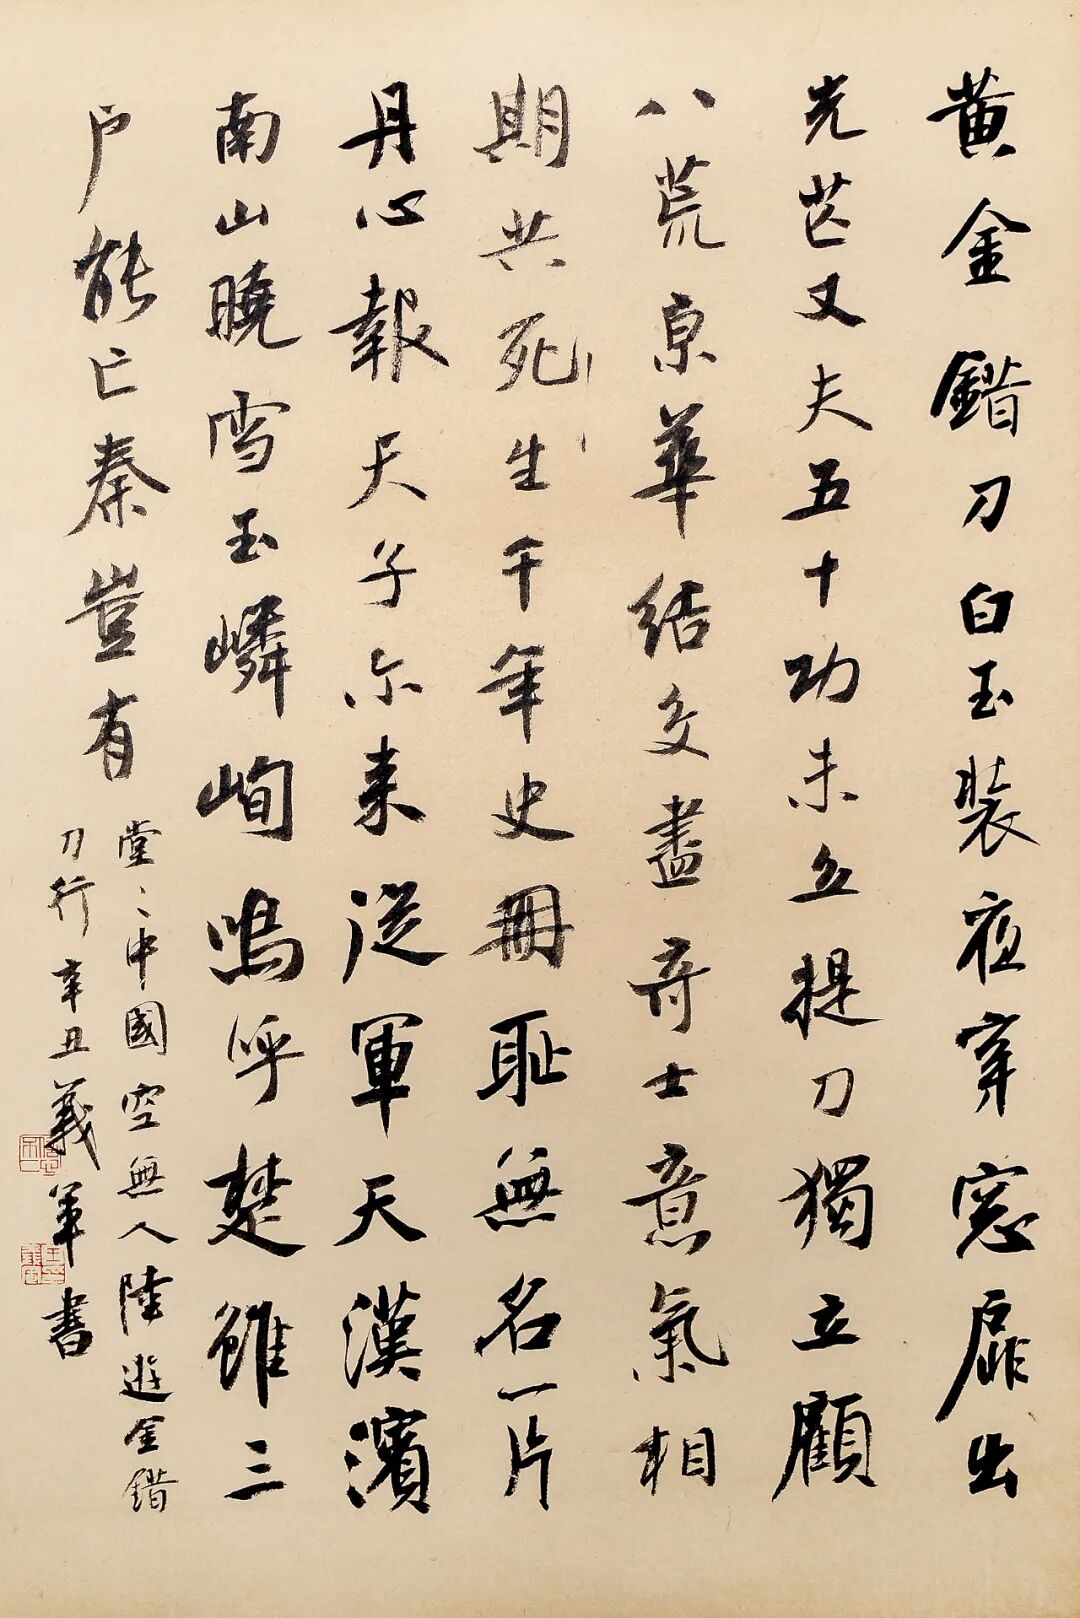 黄金錯刀白玉裝夜穿窓扉出
光芒丈夫五十功未立提刀獨立顧
八荒京華結交盡奇士意氣相
期共死生千年史冊恥無名一片
丹心報天子尔来從軍天漢濱
南山曉雪玉嶙峋嗚呼楚雖三
户能亡秦豈有
堂〻中國空無人陸遊金錯
刀行辛丑義軍書